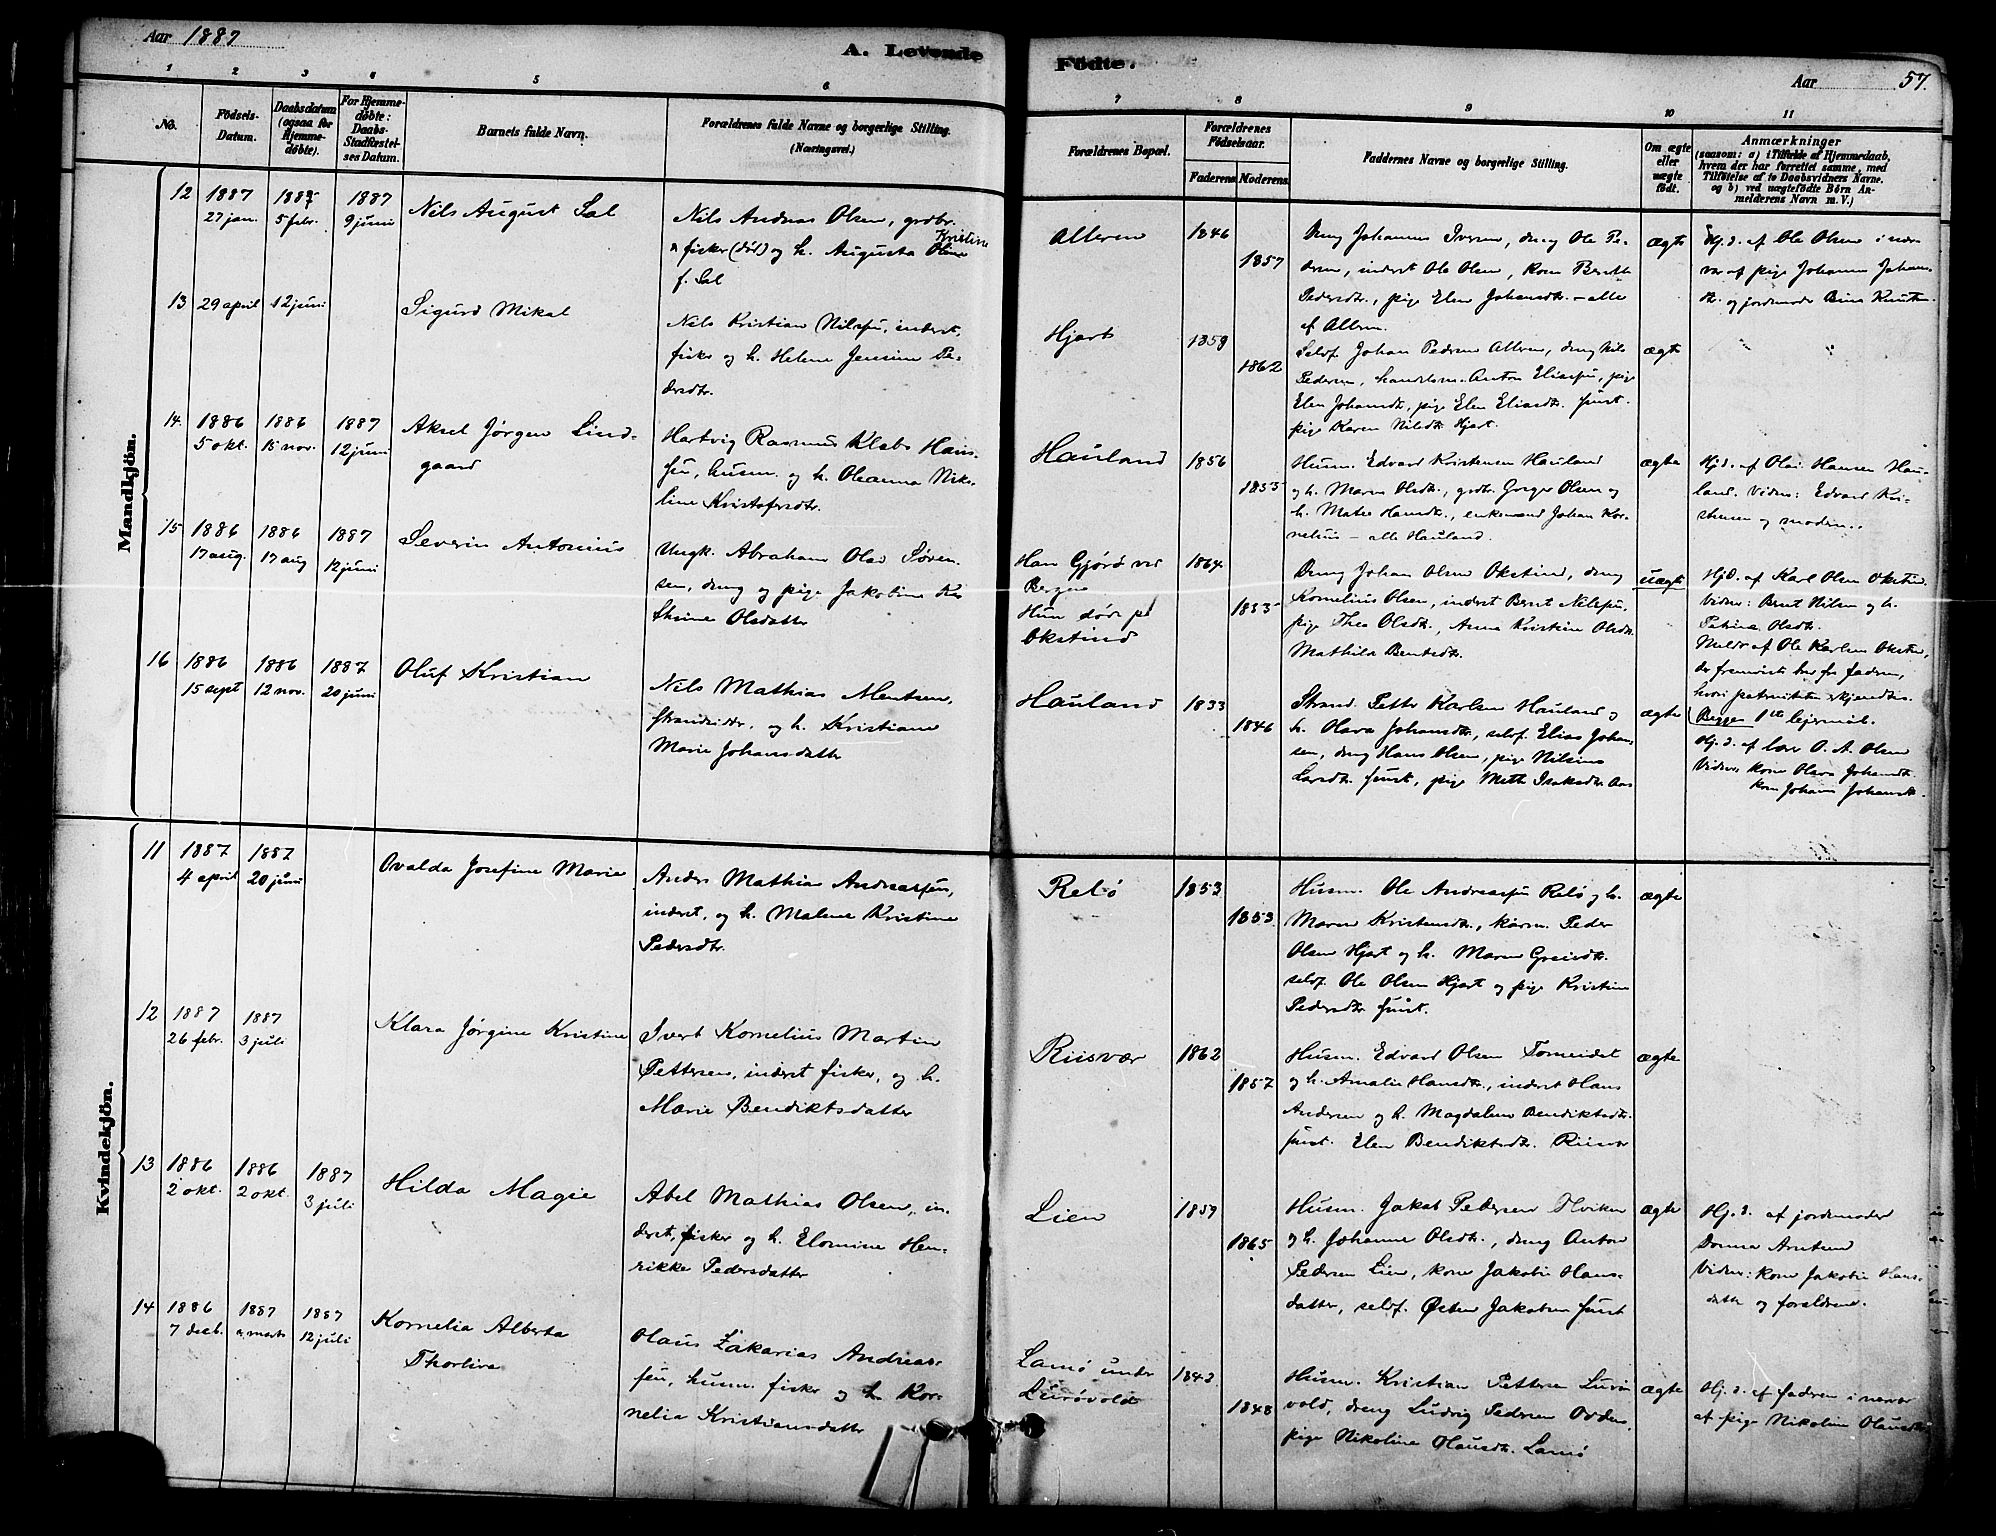 Aar 1887
A. Levende
Födte.
Aar 57.
1 2 3 4 5 6
7 8 9 10 11
No.
Födsels-
Datum.
Daabsdatum
(ogsaa for
Hjemme-
døbte).
For Hjemme-
døbte:
Daabs-
Stadfæstel-
ses Datum.
Barnets fulde Navn.
Forældrenes fulde Navne og borgerlige Stilling.
(Næringsvei.)
Forældrenes Bopæl.
Forældrenes
Födselsaar.
Faderens. Moderens.
Faddernes Navne og borgerlige Stilling.
Om ægte
eller
uægte
født.
Anmærkninger
(saasom: a) i Tilfælde af Hjemmedaab,
hvem der har forrettet samme, med
Tilföielse af to Daabsvidners Navne.
og b) ved uægtefödte Börn An-
melderens Navn m. V.)
Mandkjön.
12 1887 1887 1887
27 jan. 5 febr. 9 juni
Nils August Sal
Nils Andreas Olsen, grdbr.
Kristine
n fisker (død) og h. Augusta Olsen
f. Sal
Alteren 1846
1857
Dreng Johannes Iversen, dreng Ole Pe-
dersen, inderst Ole Olsen, kone Berit
Pedersdtr., pige Elen Johansdtr. – alle
af Alteren.
ægte
Hj. d. af Ole Olsen i nær-
vær af pige Johanna Johans-
dtr. og jordemoder
13 29 april 12 juni
Sigurd Mikal
Nils Kristian Nilssen, inderst,
fisker og h. Helene Jensine Pe-
dersdtr.
Hjart 1859
1862
Selvf. Johan Pedersen Alteren, dreng Nils
Pedersen, handelsm. Anton Eliassen, pige
Elen Johansdtr., pige Elen Eliasdtr.
pige Karen Nilsdtr. Hjart.
ægte
14. 1886 1886 1887
5 okt. 15 nov. 12 juni
Aksel Jørgen Lind-
gaard
Hartvig Rasmus Klabo Hans-
sen, husm. og h. Oleanna Niko-
line Kristofersdtr.
Hauland 1856
1855
Husm. Edvard Kristensen Hauland
og h. Maren Olsdtr., grdbr. Jørger Olsen og
h. Matre Hansdtr., enkemand Johan Kor-
nelius – alle Hauland.
ægte
Hj. d. af Olai Hansen Hau-
land. Vidner: Edvard Kri-
stensen og moderen.
15 1886 1886 1887
17 aug. 17 aug 12 juni
Severin Antonius
Ungk. Abraham Olai Søren-
sen, dreng og pige Jakobine Kri-
stine Olsdatter
Han Gjørd ved
Bergen
Hun død på
Økstind
1864
1855
Dreng Johan Olsen Økstind, dreng
Kornelius Olsen, inderst Bernt Nilssen,
pige Thea Olsdtr., Anna Kristine Olsdtr.
Mathilda Berntsdtr.
uægte
Hj.d. af Karl Olsen Økstind
Vidner: Bernt Nilsen og h.
Petrina Olsdtr.
Meldt af Ole Karlsen Økstind,
der fremviste brev fra faderen,
hvori paterniteten erkjendtes.
Begges 1ste leiermål.
16 1886 1886 1887
15 sept 12 nov. 20 juni
Oluf Kristian
Nils Mathias Mentsen,
strandsidder, og h. Kristiane
Marie Johansdatter
Hauland 1833
1846
Strand. Petter Karlsen Hauland og
h. Olava Johansdtr., selvf. Elias Johan-
sen, dreng Hans Olsen, pige Nilsine
Larsdtr., pige Meth Isaksdtr. Aas
ægte
Hj. d. af lærer O. A. Olsen
Vidner: Kone Olava Johansdtr.
Kone Johana Johansdtr.
Kvindekjön.
11 1887 1887
4 april 20 juni
Ovalda Josefine Marie
Anders Mathias Andreassen,
inderst, og h. Malene Kristine
Pedersdtr.
Relø 1853
1853
Husm. Ole Andreassen Relø og h.
Maren Kristensdtr., kårm. Peder
Olsen Hjart og h. Maren Greisdtr.
selvf. Ole Olsen Hjart og pige Kristine
Pedersdtr.
ægte
12 1887 1887
26 febr. 3 juli
Klara Jørgine Kristine
Ivert Kornelius Martin
Pettersen, inderst fisker, og h.
Marie Bendiktsdatter
Riisvær 1862
1857
Husm. Edvard Olsen Tomeidet
og h. Amalie Hansdtr., inderst Hans
Andersen og h. Magdalena Bendiktsdtr.
Elen Bendiktsdtr. Riisvær
ægte
13 1886 1886 1887
2 okt. 2 okt. 3 juli
Hilda Magie
Abel Mathias Olsen, in-
derst, fisker og h. Elomine Hen-
rikke Pedersdatter
Lien 1859
1865
Husm. Jakob Pedersen Hviken
og h. Johanna Olsdtr., dreng Anton
Pedersen Lien, kone Jakobie Hans-
datter, selvf. Østen Jakobsen
ægte
Hj. d. af jordemoder
Donna Arntsen
Vidner: Kone Jakobie Hans-
datter og forældrene.
14 1886 1887 1887
7 decb. marts 12 juli
Kornelia Alberta
Thorlive
Olaus Zakarias Andreas-
sen, husm. fisker og h. Kor-
nelia Kristiansdatter
Lamø under
Lurøvold
1843
1848
Husm. Kristian Pettersen Lurø-
vold, dreng Ludvig Pedersen Odden,
pige Nikoline Olausdtr. Lamø
ægte
Hj. d. af faderen i nærvær
af pige Nikoline Olausdtr